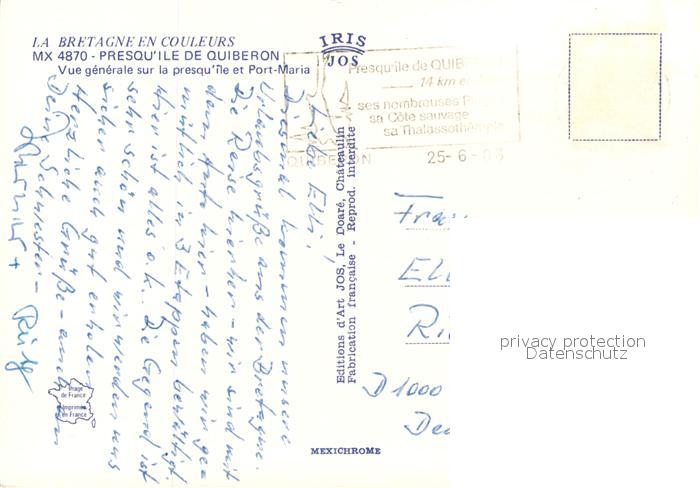 LA BRETAGNE EN COULEURS
MX 4870 - PRESQU'ILE DE QUIBERON
Vue générale sur la presqu'île et Port-Maria
IRIS
JOS
Presqu'ile de QUIB
14 km e
ses nombreuses P
sa Côte sauvage
sa Thalassothé
QUIBERON
25-6-
Liebe Elli!
Diesmal kommen unsere
Urlaubsgrüße aus der Bretagne.
Die Reise hierher - wir sind mit
dem Auto hier - haben wir ge
mütlich in 3 Etappen bewältigt.
Hier ist alles o.k. Die Gegend ist
sehr schön und wir werden uns
sicher auch gut erholen
Herzliche Grüße - auch
Deine Schwester -
Editions d'Art JOS, Le Doaré, Châteaulin
Fabrication française - Reprod. interdite
Image
de France
Imprimée
en France
MEXICHROME
Fra
Ell
D 1000
privacy protection
Datenschutz